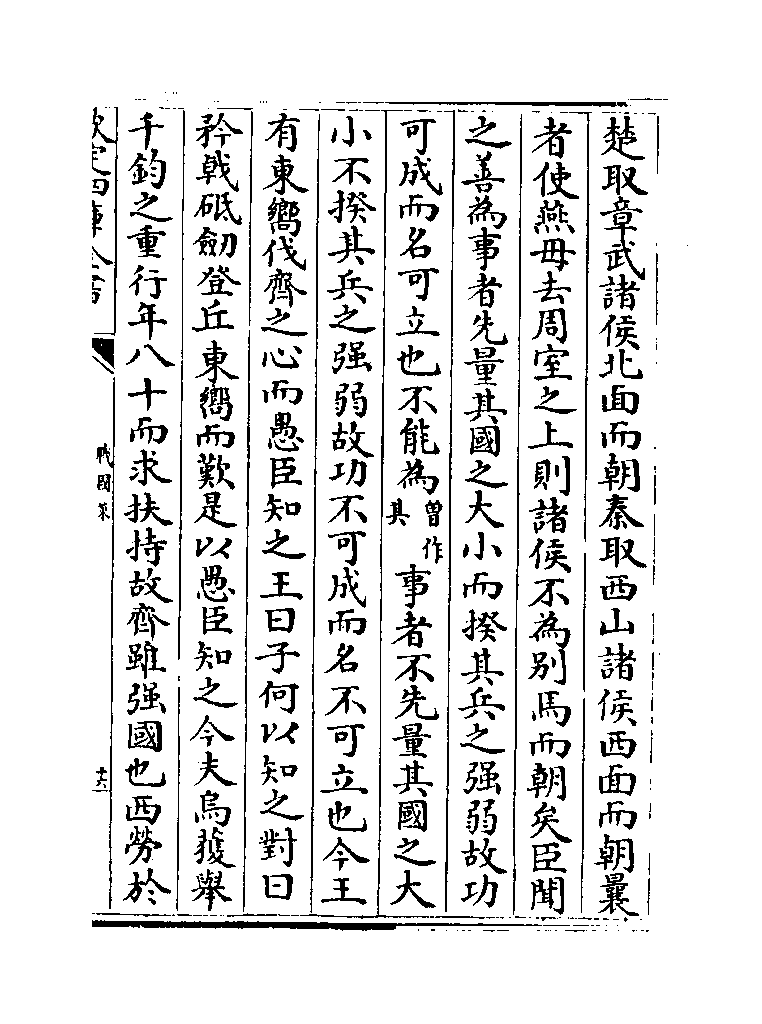 楚取章武諸侯北面而朝秦取西山諸侯西面而朝曩
者使燕毋去周室之上則諸侯不為别馬而朝矣臣聞
之善為事者先量其國之大小而揆其兵之强弱故功
可成而名可立也不能為曽作其事者不先量其國之大
小不揆其兵之强弱故功不可成而名不可立也今王
有東嚮伐齊之心而愚臣知之王曰子何以知之對曰
矜戟砥劒登丘東嚮而歎是以愚臣知之今夫烏獲舉
千鈞之重行年八十而求扶持故齊雖强國也西勞於
欽定四庫全書
戰國策
十六